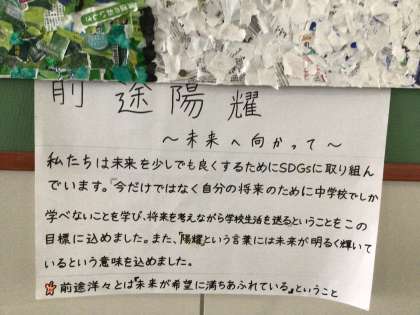 前途陽耀
～未来へ向かって～
私たちは未来を少しでも良くするためにSDGsに取り組ん
でいます。「今だけではなく自分の将来のために中学校でしか
学べないことを学び、将来を考えながら学校生活を送るということをこの
目標に込めました。また、「陽耀」という言葉には未来が明るく輝いて
いるという意味を込めました。
前途洋々とは「未来が希望に満ちあふれている」ということ